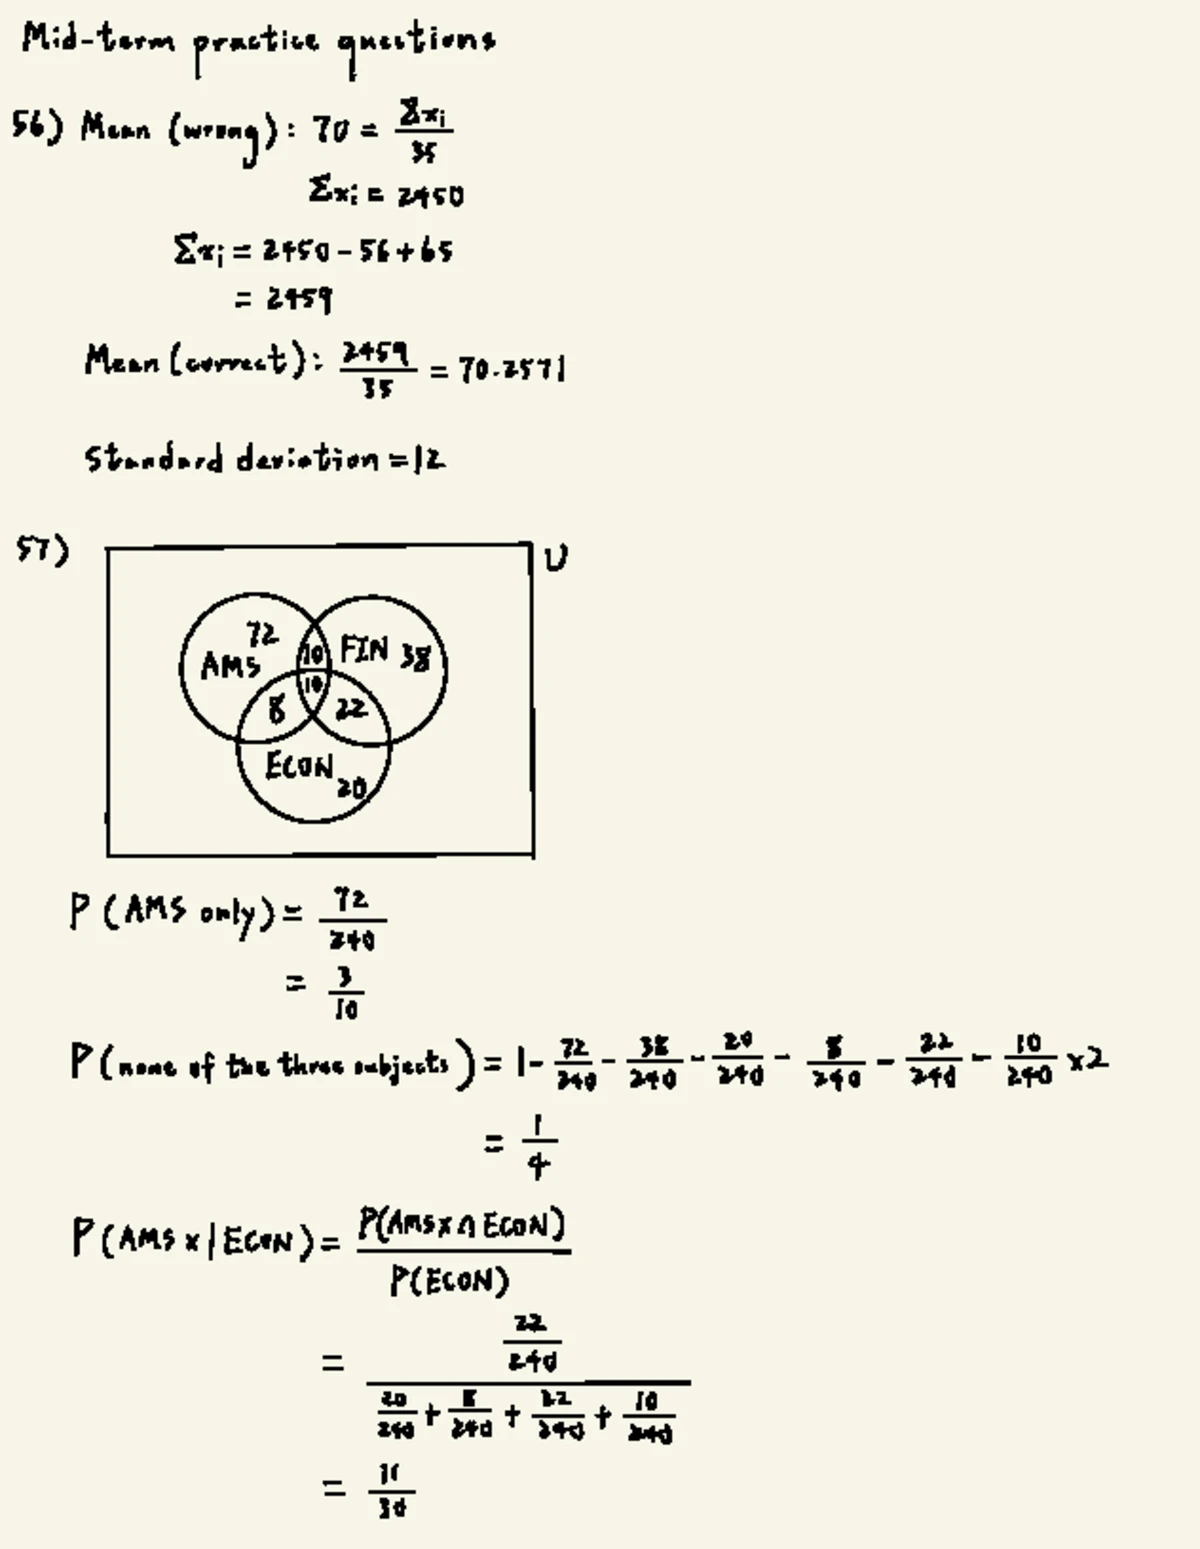 Mid-term practice questions
56) Mean (wrong): 70 = Σxi/35
Σxi = 2450
Σxi = 2450 - 56 + 65
= 2459
Mean (correct): 2459/35 = 70.2571
Standard deviation = 12
57)
U
72
AMS
10
FIN 38
10
8
22
ECON
20
P (AMS only) = 72/240
= 3/10
P (none of the three subjects) = 1 - 72/240 - 38/240 - 20/240 - 8/240 - 22/240 - 10/240 x2
= 1/4
P (AMS x | ECON) = P(AMS x ∩ ECON)/P(ECON)
= (22/240)/(20/240 + 8/240 + 22/240 + 10/240)
= 11/30